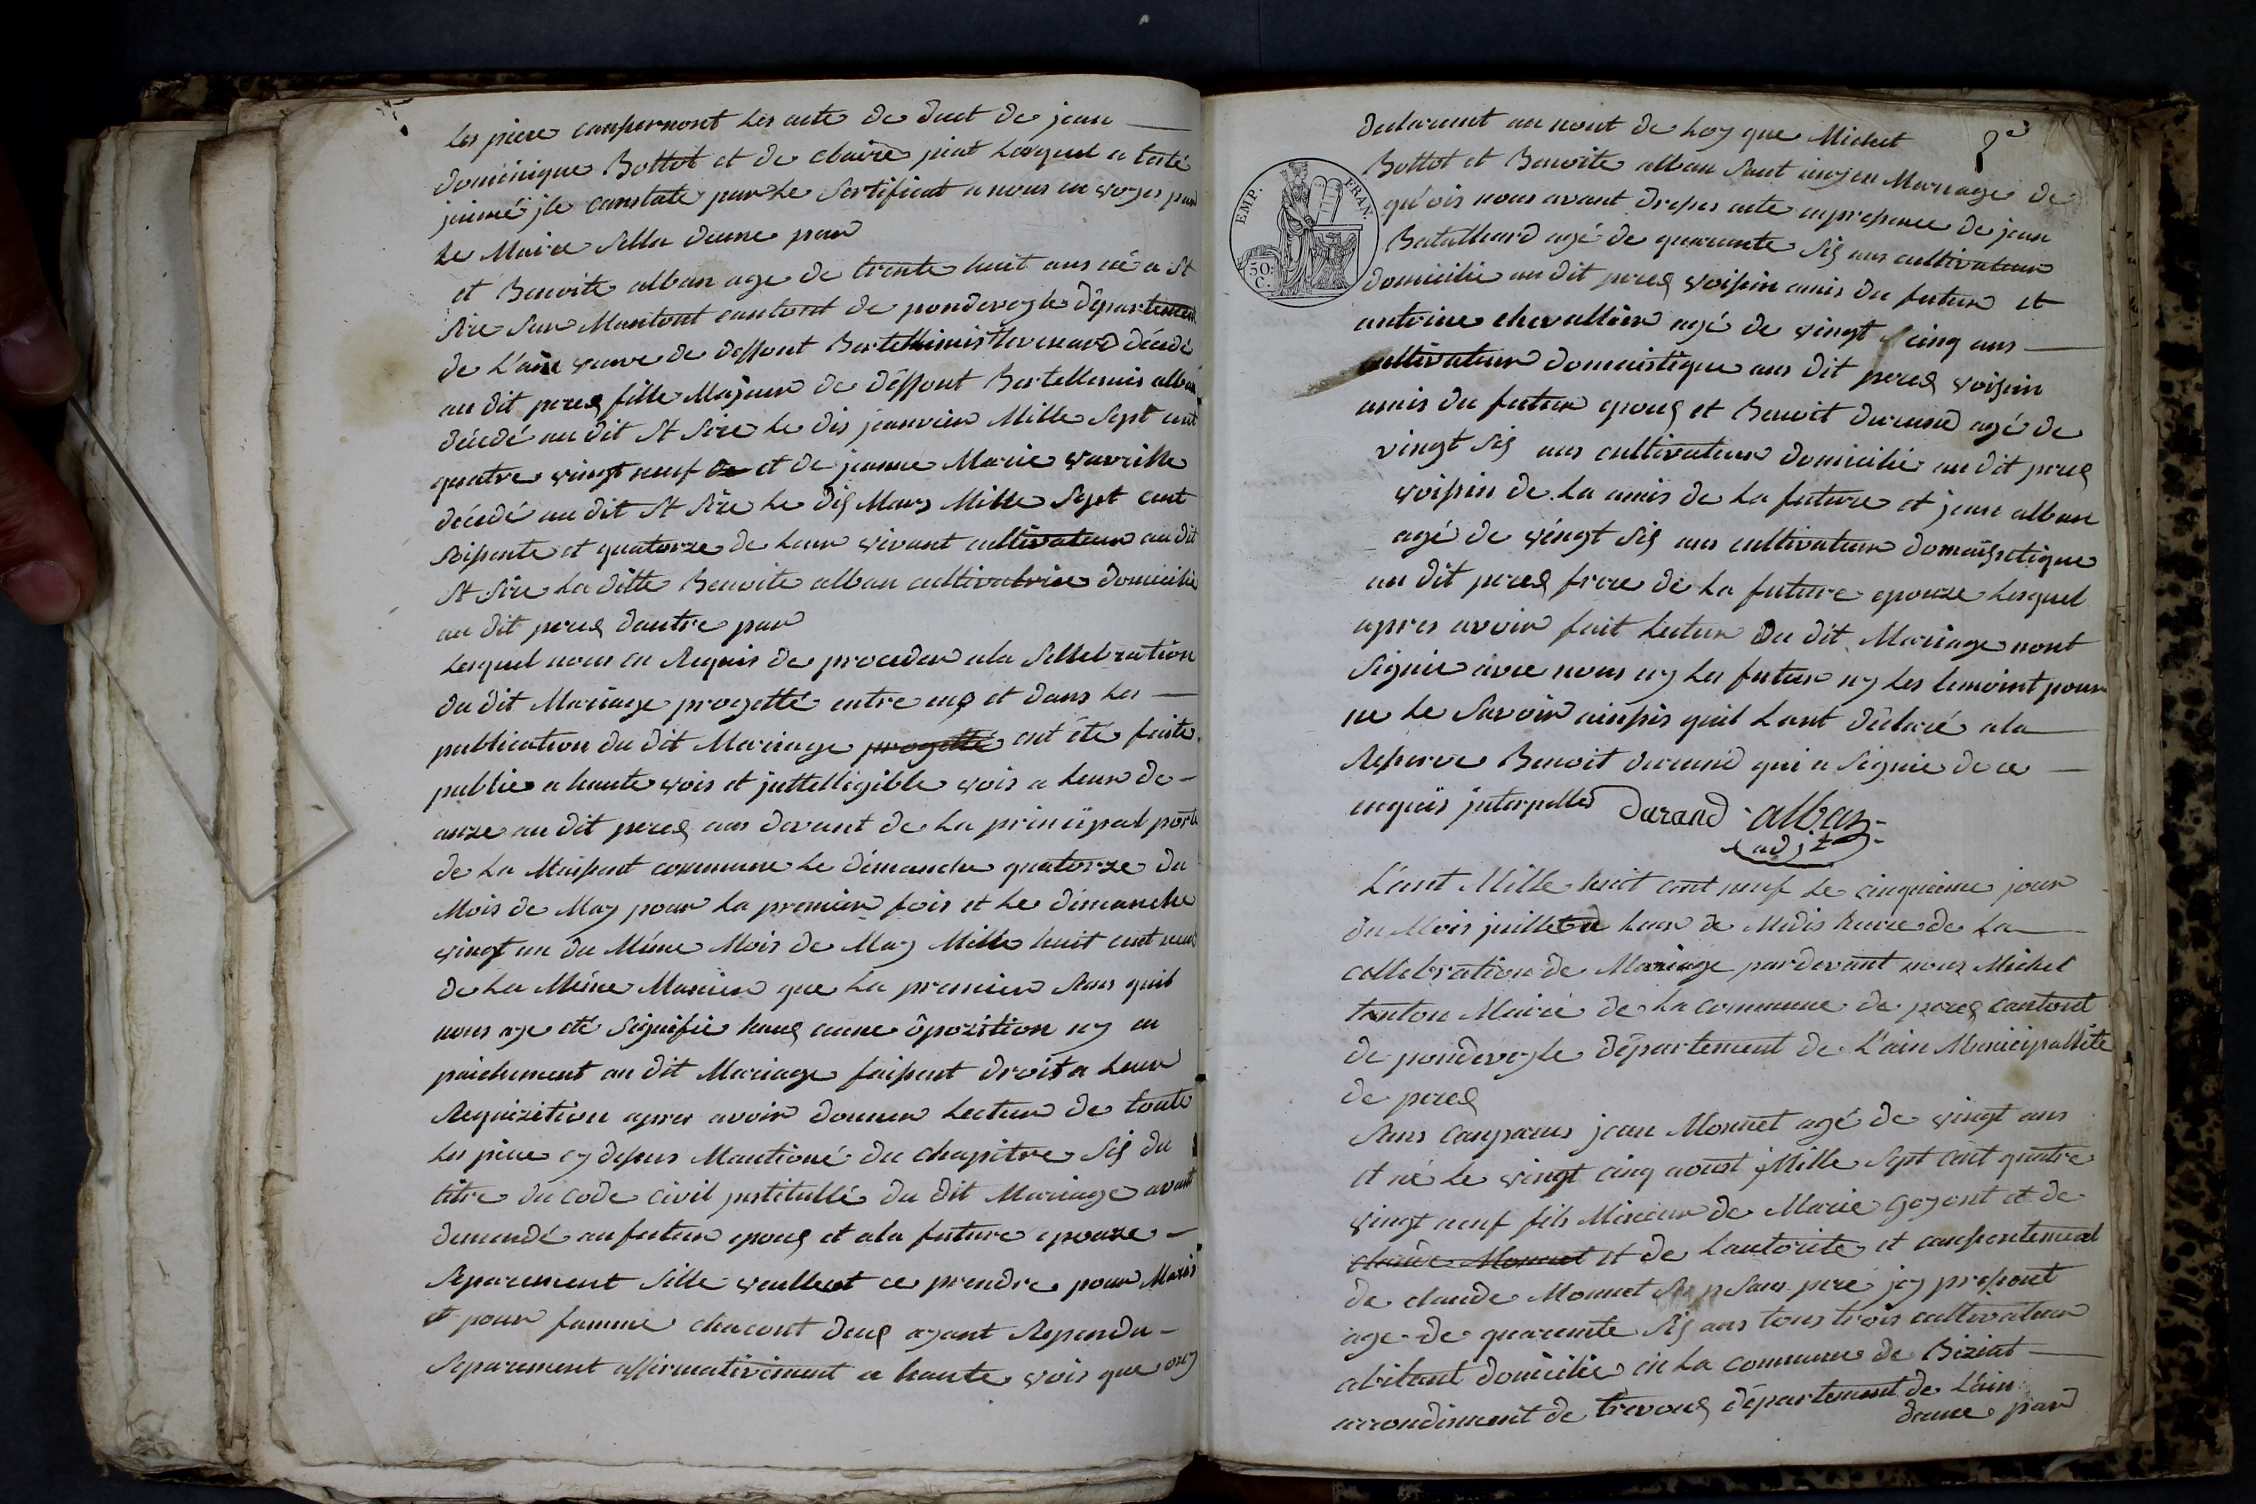 les piere conpernont les acte de duct de jean
dominique Bottot et de claire piat lesquel a testé
jnimé jle constate par le sertificat a nous en voyer par
le Maire sella deune par
et Benoite alban age de trente huit ans né a St
sire sur Mantont cantont de pondevogle département
de L'ain veuve de deffont Bertellimis tevenard décédé
au dit peres fille Majeur de déffont Bertellemis alban
décédé au dit St Sire le dis jeanvier Mille Sept cent
quatre vingt neuf de et de jeanne Marie vavrille
décédé au dit St Sire le dis Mars Mille Sept cent
soisente et quatorze de leur vivant cultivateur au dit
St Sire la ditte Benoite alban cultivatrise domicilie
au dit peres dautre par
lesquel nous en Requis de proceder ala sellebration
du dit Mariage progetté entre eus et dans les
publication du dit Mariage progetté ont été faite
publie a haute vois et jnttelligible vois a leur de-
anze au dit peres aus devant de la principal porte
de la Maisont commune le démanche quatorze du
Mois de May pour la premier fois et le démanche
vingt un du Méme Mois de May Mille huit cent neuf
de la Méme Manier que la premier sans quil
nous aye eté signifié hauq cune ôpozition ny en
paichement au dit Mariage faisent droit a leur
Requizition apres avoir donner lecture de toute
les piece cy desus Mantioné du chapitre sis du
titre du code civil jnstitullé du dit Mariage avont
demendé au futur epous et ala future epouze
separement sille veullent ce prendre pour Maris
et pour famme chacont deus ayant Repondu
separement affirmativement a haute vois que ouy
declarent au nont de loy que Michel
2e
Bottot et Benoite alban sont uny en Mariage de
EMP. FRAN.
50 C.
quois nous avont dreses acte enpresence de jean
Batallard agé de quarante sis ans cultivateur
domicilie au dit peres voisin amis du futur et
antoine chevallier agé de vingt cinq ans
cultivateur domaistique aus dit peres voisin
amis du futur epous et Benoit durand agé de
vingt sis ans cultivateur domicilie au dit peres
voisin de la amis de la future et jean alban
agé de vingt sis ans cultivateur domaisstique
au dit peres frere de la future epouze lesquel
apres avoir fait lectur du dit Mariage nont
signie avec nous ny les futur ny les temoint pour
ne le savoir ainsis quil lont déclaré ala
Reserve Benoit durand qui a signie de ce
enquis jnterpelles Durand alban
adjt
L'ant Mille huit cent neuf le cinquieme jour
du Mois juillet a leur de Midis heure de la
collebration de Mariage pardevant nous Michel
tonton Mairie de la commune de peres cantont
de pondevogle département de L'ain Municipallité
de peres
sans conparus jean Monnet agé de vingt ans
et né le vingt cinq aoust Mille Sept cent quatre
vingt neuf fils Mineur de Marie goyont et de
claude Monnet et de lautorité et consentement
de claude Monnet son pere jcy present
age de quarente sis ans tous trois cultivateur
abitant domicilie en la commune de Biziat
arrondiment de trevous département de L'ain
daune par